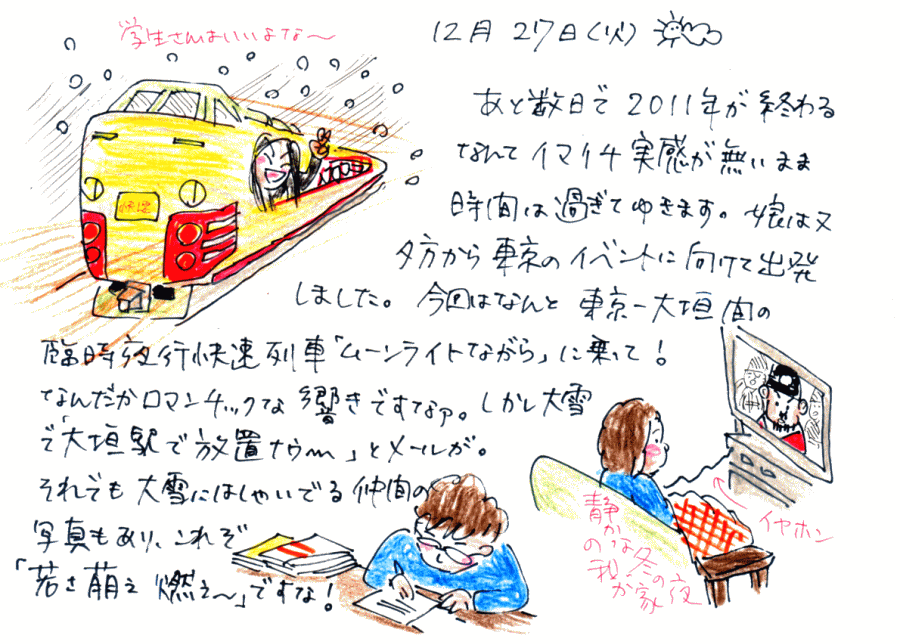 学生さんはいいよな〜
12月27日(火)
あと数日で2011年が終わる
なんてイマイチ実感が無いまま
時間は過ぎてゆきます。娘は又
夕方から東京のイベントに向けて出発
しました。今回はなんと東京ー大垣間の
臨時夜行快速列車「ムーンライトながら」に乗って!
なんだかロマンチックな響きですなァ。しかし大雪
で「大垣駅で放置ナウ〜」とメールが。
それでも大雪にはしゃいでる仲間の
写真もあり、これぞ
「若さ萌え燃え〜」ですな!
快速
イヤホン
静かな冬の夜
の我が家